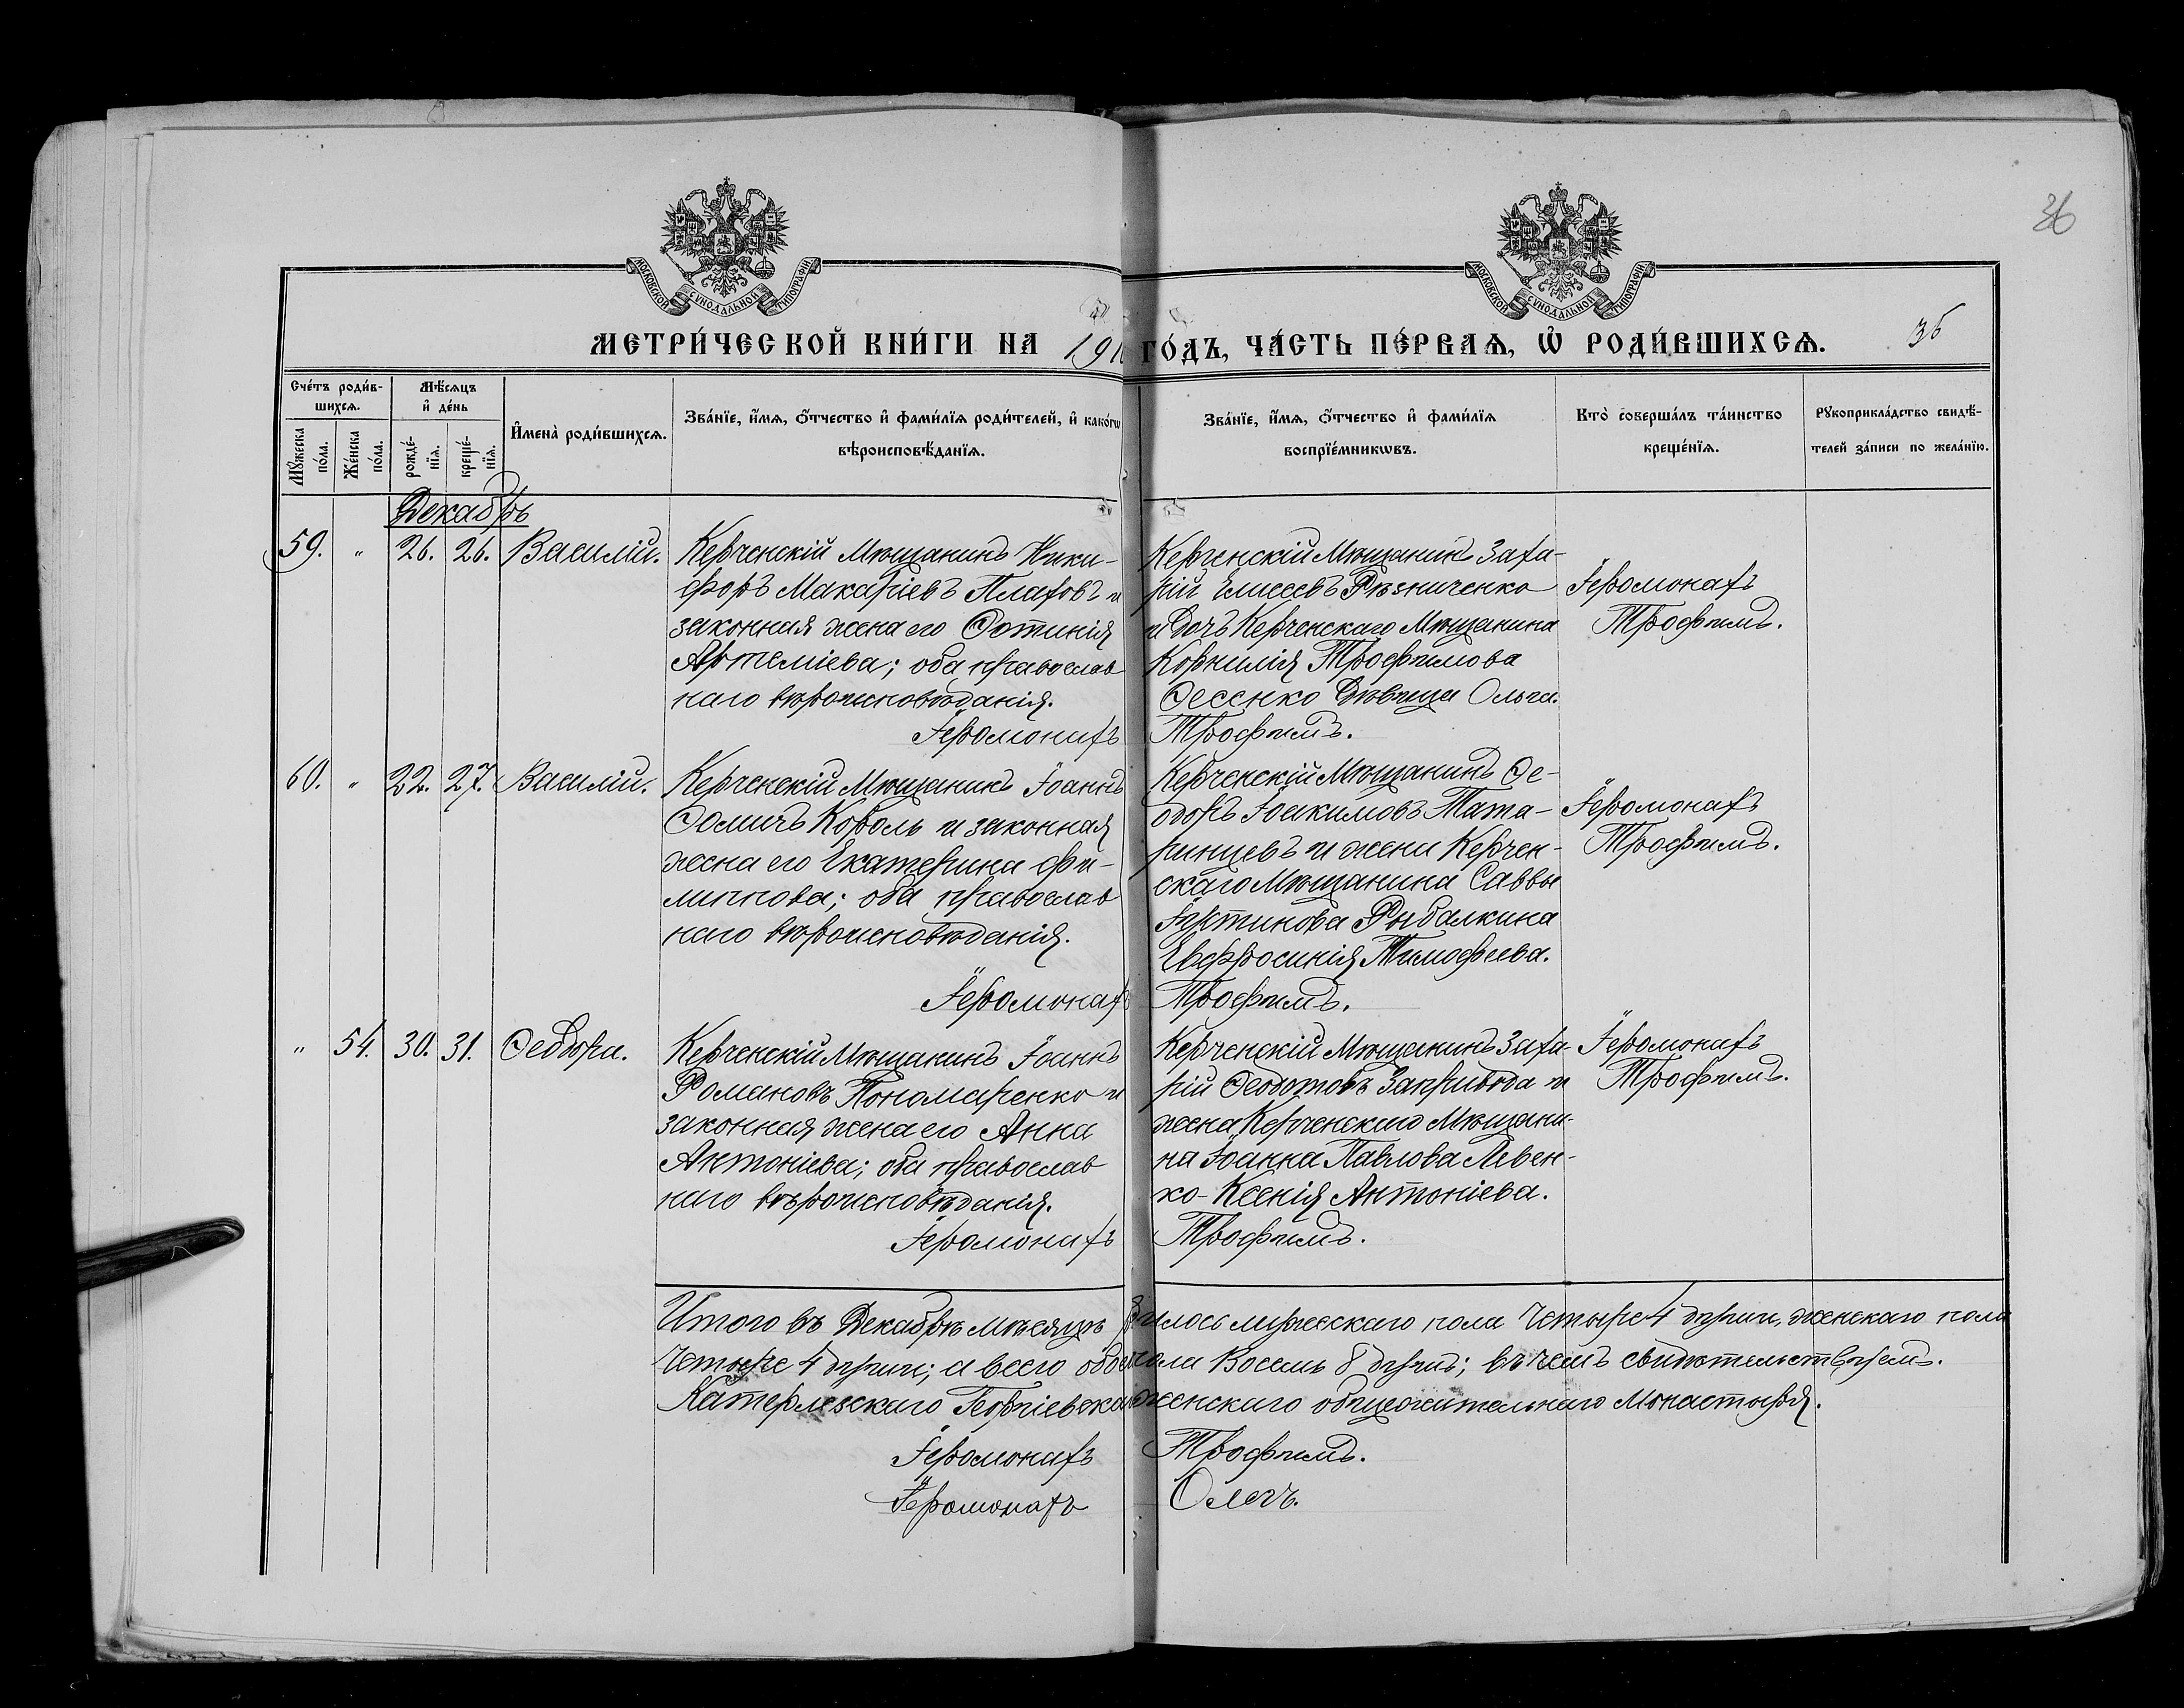 36
МОСКОВСКОЙ СѴНОДАЛЬНОЙ ТИПОГРАФІИ
МОСКОВСКОЙ СѴНОДАЛЬНОЙ ТИПОГРАФІИ
МЕТРИ́ЧЕСКОЙ КНИ́ГИ НА 191 ГО́ДЪ, ЧА́СТЬ ПЕ́РВАѦ, Ѡ҆ РОДИ́ВШИХСѦ. 36
Сче́тъ роди́в-
шихсѧ.
Мѣ́сѧцъ
и҆ де́нь
Мꙋ́жеска
по́ла.
Же́нска
по́ла.
рожде́-
нїѧ.
креще́-
нїѧ.
И҆мена̀ роди́вшихсѧ.
Зва́нїе, и҆́мѧ, ѻ҆́тчество и҆ фами́лїѧ роди́телей, и҆ како́гѡ
вѣроисповѣ́данїѧ.
Зва́нїе, и҆́мѧ, ѻ҆́тчество и҆ фами́лїѧ
воспрїе́мникѡвъ.
Кто̀ соверша́лъ та́инство
креще́нїѧ.
Рꙋкоприкла́дство свидѣ́-
телей за́писи по жела́нїю.
Декабрь
59. " 26. 26. Василій.
Керченскій Мѣщанинъ Ники-
форъ Макаріевъ Плаховъ и
законная жена его Фотинія
Артеміева; оба православ
наго вѣроисповѣданія.
Іеромонахъ
Керченскій Мѣщанинъ Заха-
рій Елисеевъ Рѣзниченко
и дочь Керченскаго Мѣщанина
Корнилія Трофимова
Фесенко Дѣвица Ольга.
Трофимъ.
Іеромонахъ
Трофимъ.
60. " 22. 27. Василій.
Керченскій Мѣщанинъ Іоаннъ
Фомичъ Король и законная
жена его Екатерина Фи-
липпова; оба православ
наго вѣроисповѣданія.
Іеромонахъ
Керченскій Мѣщанинъ Фе-
одоръ Іоакимовъ Тата-
ринцевъ и жена Керчен-
скаго Мѣщанина Саввы
Рыбалкина
Евфросинія Тимофеева.
Трофимъ.
Іеромонахъ
Трофимъ.
" 54. 30. 31. Феодора.
Керченскій Мѣщанинъ Іоаннъ
Романовъ Пономаренко и
законная жена его Анна
Антоніева; оба православ
наго вѣроисповѣданія.
Іеромонахъ
Керченскій Мѣщанинъ Заха-
рій Феодотовъ Запривода и
жена Керченскаго Мѣщани-
на Іоанна Павлова Левен-
ко - Ксенія Антоніева.
Трофимъ.
Іеромонахъ
Трофимъ.
Итого въ Декабрѣ мѣсяцѣ родилось мужескаго пола Четыре 4 души, женскаго пола
Четыре 4 души; а всего обоего пола Восемь 8 душъ; въ чемъ свидѣтельствуемъ.
Катерлезскаго Георгіевскаго женскаго общежительнаго Монастыря.
Іеромонахъ Трофимъ.
Іеромонахъ Олегъ.